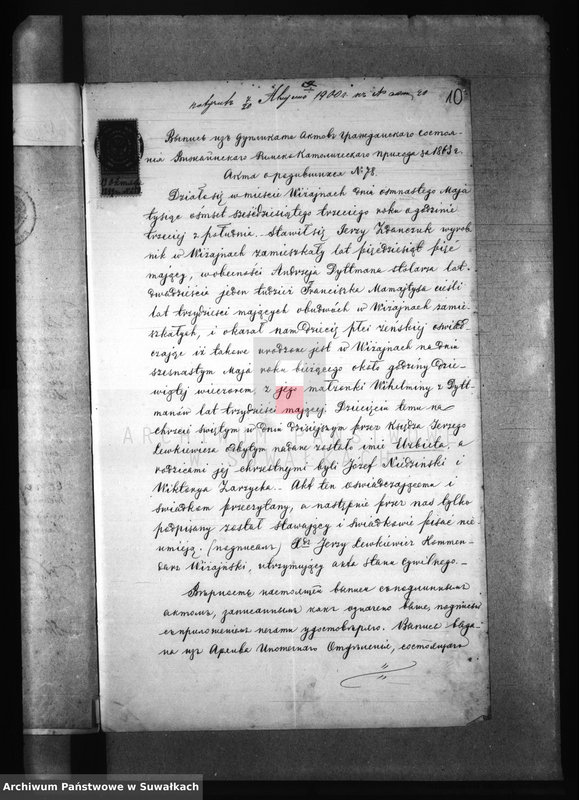 7/20 Августа 1900 г. 20
10
Выпись изъ дупликата Актовъ Гражданскаго состоя-
нія Вижайнскаго Римско Католическаго прихода за 1863 г.
Акта о родившихся № 78.
Działo się w mieście Wiżajnach dnia osmnastego Maja
tysiąc osmset sześćdziesiątego trzeciego roku o godzinie
trzeciej z południa. Stawił się Jerzy Zdanczuk wyrob
nik w Wiżajnach zamieszkały lat pięćdziesiąt pięć
mający, w obecności Andrzeja Dyttmana stolarza lat
dwadzieścia jeden tudzież Franciszka Mamajtysa cieśli
lat trzydzieści mających obudwóch w Wiżajnach zamie-
szkałych, i okazał nam dziecię płci żeńskiej oświad
czając iż takowe urodzone jest w Wiżajnach na dniu
szesnastym Maja roku bieżącego około godziny dzie-
wiątej wieczorem z jego małżonki Wilhelminy z Dytt-
manów lat trzydzieści mającej. Dziecięciu temu na
chrzcie świętym w dniu dzisiejszym przez Księdza Jerzego
Lewkiewicza odbytym nadane zostało imie Urbieta, a
rodzicami jej chrzestnymi byli Józef Niedzinski i
Wiktorya Zarzycka. Akt ten oświadczającemu i
świadkom przeczytany, a następnie przez nas tylko
podpisany został stawający i świadkowie pisać nie-
umieją. (подписалъ) Xdz Jerzy Lewkiewicz Kommen-
darz Wiżajński, utrzymujący akta stanu cywilnego. -
Вѣрность настоящей выписи съ подлиннымъ
актомъ, записаннымъ какъ означено выше, подписью
съ приложеніемъ печати удостовѣряю. Выпись выда-
на изъ Архива Ипотечнаго Отдѣленія, состоящаго
Archiwum Państwowe w Suwałkach